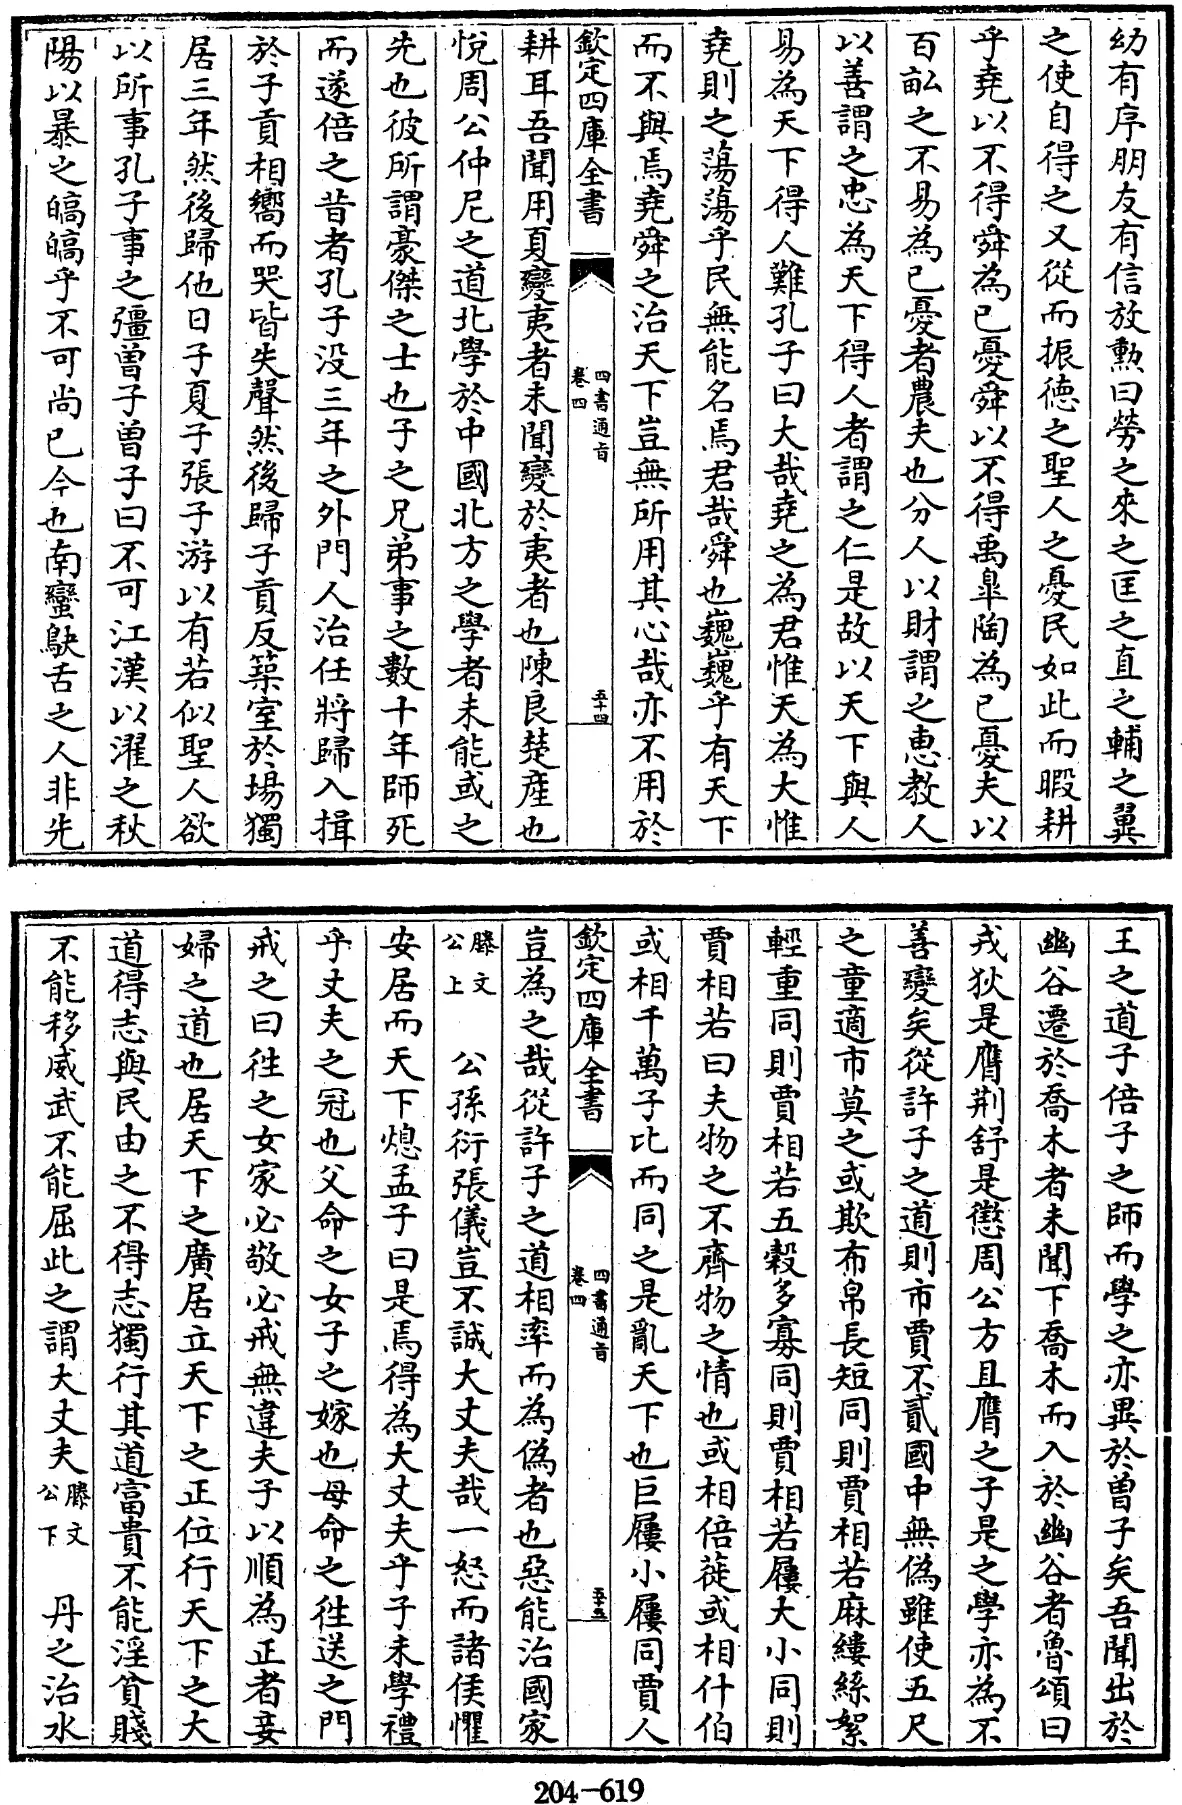 幼有序朋友有信放勲曰勞之來之匡之直之輔之翼
之使自得之又從而振德之聖人之憂民如此而暇耕
乎堯以不得舜為已憂舜以不得禹臯陶為已憂夫以
百畆之不易為已憂者農夫也分人以財謂之恵教人
以善謂之忠為天下得人者謂之仁是故以天下與人
易為天下得人難孔子曰大哉堯之為君惟天為大惟
堯則之蕩蕩乎民無能名焉君哉舜也巍巍乎有天下
而不與焉堯舜之治天下豈無所用其心哉亦不用於
欽定四庫全書
四書通旨
卷四
五十四
耕耳吾聞用夏變夷者未聞變於夷者也陳良楚産也
悅周公仲尼之道北學於中國北方之學者未能或之
先也彼所謂豪傑之士也子之兄弟事之數十年師死
而遂倍之昔者孔子没三年之外門人治任將歸入揖
於子貢相嚮而哭皆失聲然後歸子貢反築室於場獨
居三年然後歸他日子夏子張子游以有若似聖人欲
以所事孔子事之彊曽子曽子曰不可江漢以濯之秋
陽以暴之皜皜乎不可尚已今也南蠻鴃舌之人非先
王之道子倍子之師而學之亦異於曽子矣吾聞出於
幽谷遷於喬木者未聞下喬木而入於幽谷者魯頌曰
戎狄是膺荆舒是懲周公方且膺之子是之學亦為不
善變矣從許子之道則市賈不貳國中無偽雖使五尺
之童適市莫之或欺布帛長短同則賈相若麻縷絲絮
輕重同則賈相若五穀多寡同則賈相若屨大小同則
賈相若曰夫物之不齊物之情也或相倍蓰或相什伯
或相千萬子比而同之是亂天下也巨屨小屨同賈人
欽定四庫全書
四書通旨
卷四
五十五
豈為之哉從許子之道相率而為偽者也惡能治國家
滕文公上　公孫衍張儀豈不誠大丈夫哉一怒而諸侯懼
安居而天下熄孟子曰是焉得為大丈夫乎子未學禮
乎丈夫之冠也父命之女子之嫁也母命之徃送之門
戒之曰徃之女家必敬必戒無違夫子以順為正者妾
婦之道也居天下之廣居立天下之正位行天下之大
道得志與民由之不得志獨行其道富貴不能淫貧賤
不能移威武不能屈此之謂大丈夫滕文公下　丹之治水
204-619